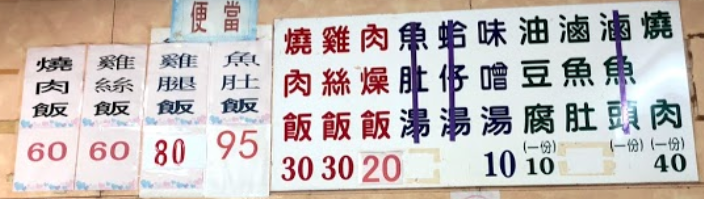 便當
燒肉飯
60
雞絲飯
60
雞腿飯
80
魚肚飯
95
燒肉飯
30
雞絲飯
30
肉燥飯
20
魚肚湯
蛤仔湯
味噌湯
10
油豆腐
(一份)
10
滷魚肚
滷魚頭
(一份)
燒肉
(一份)
40